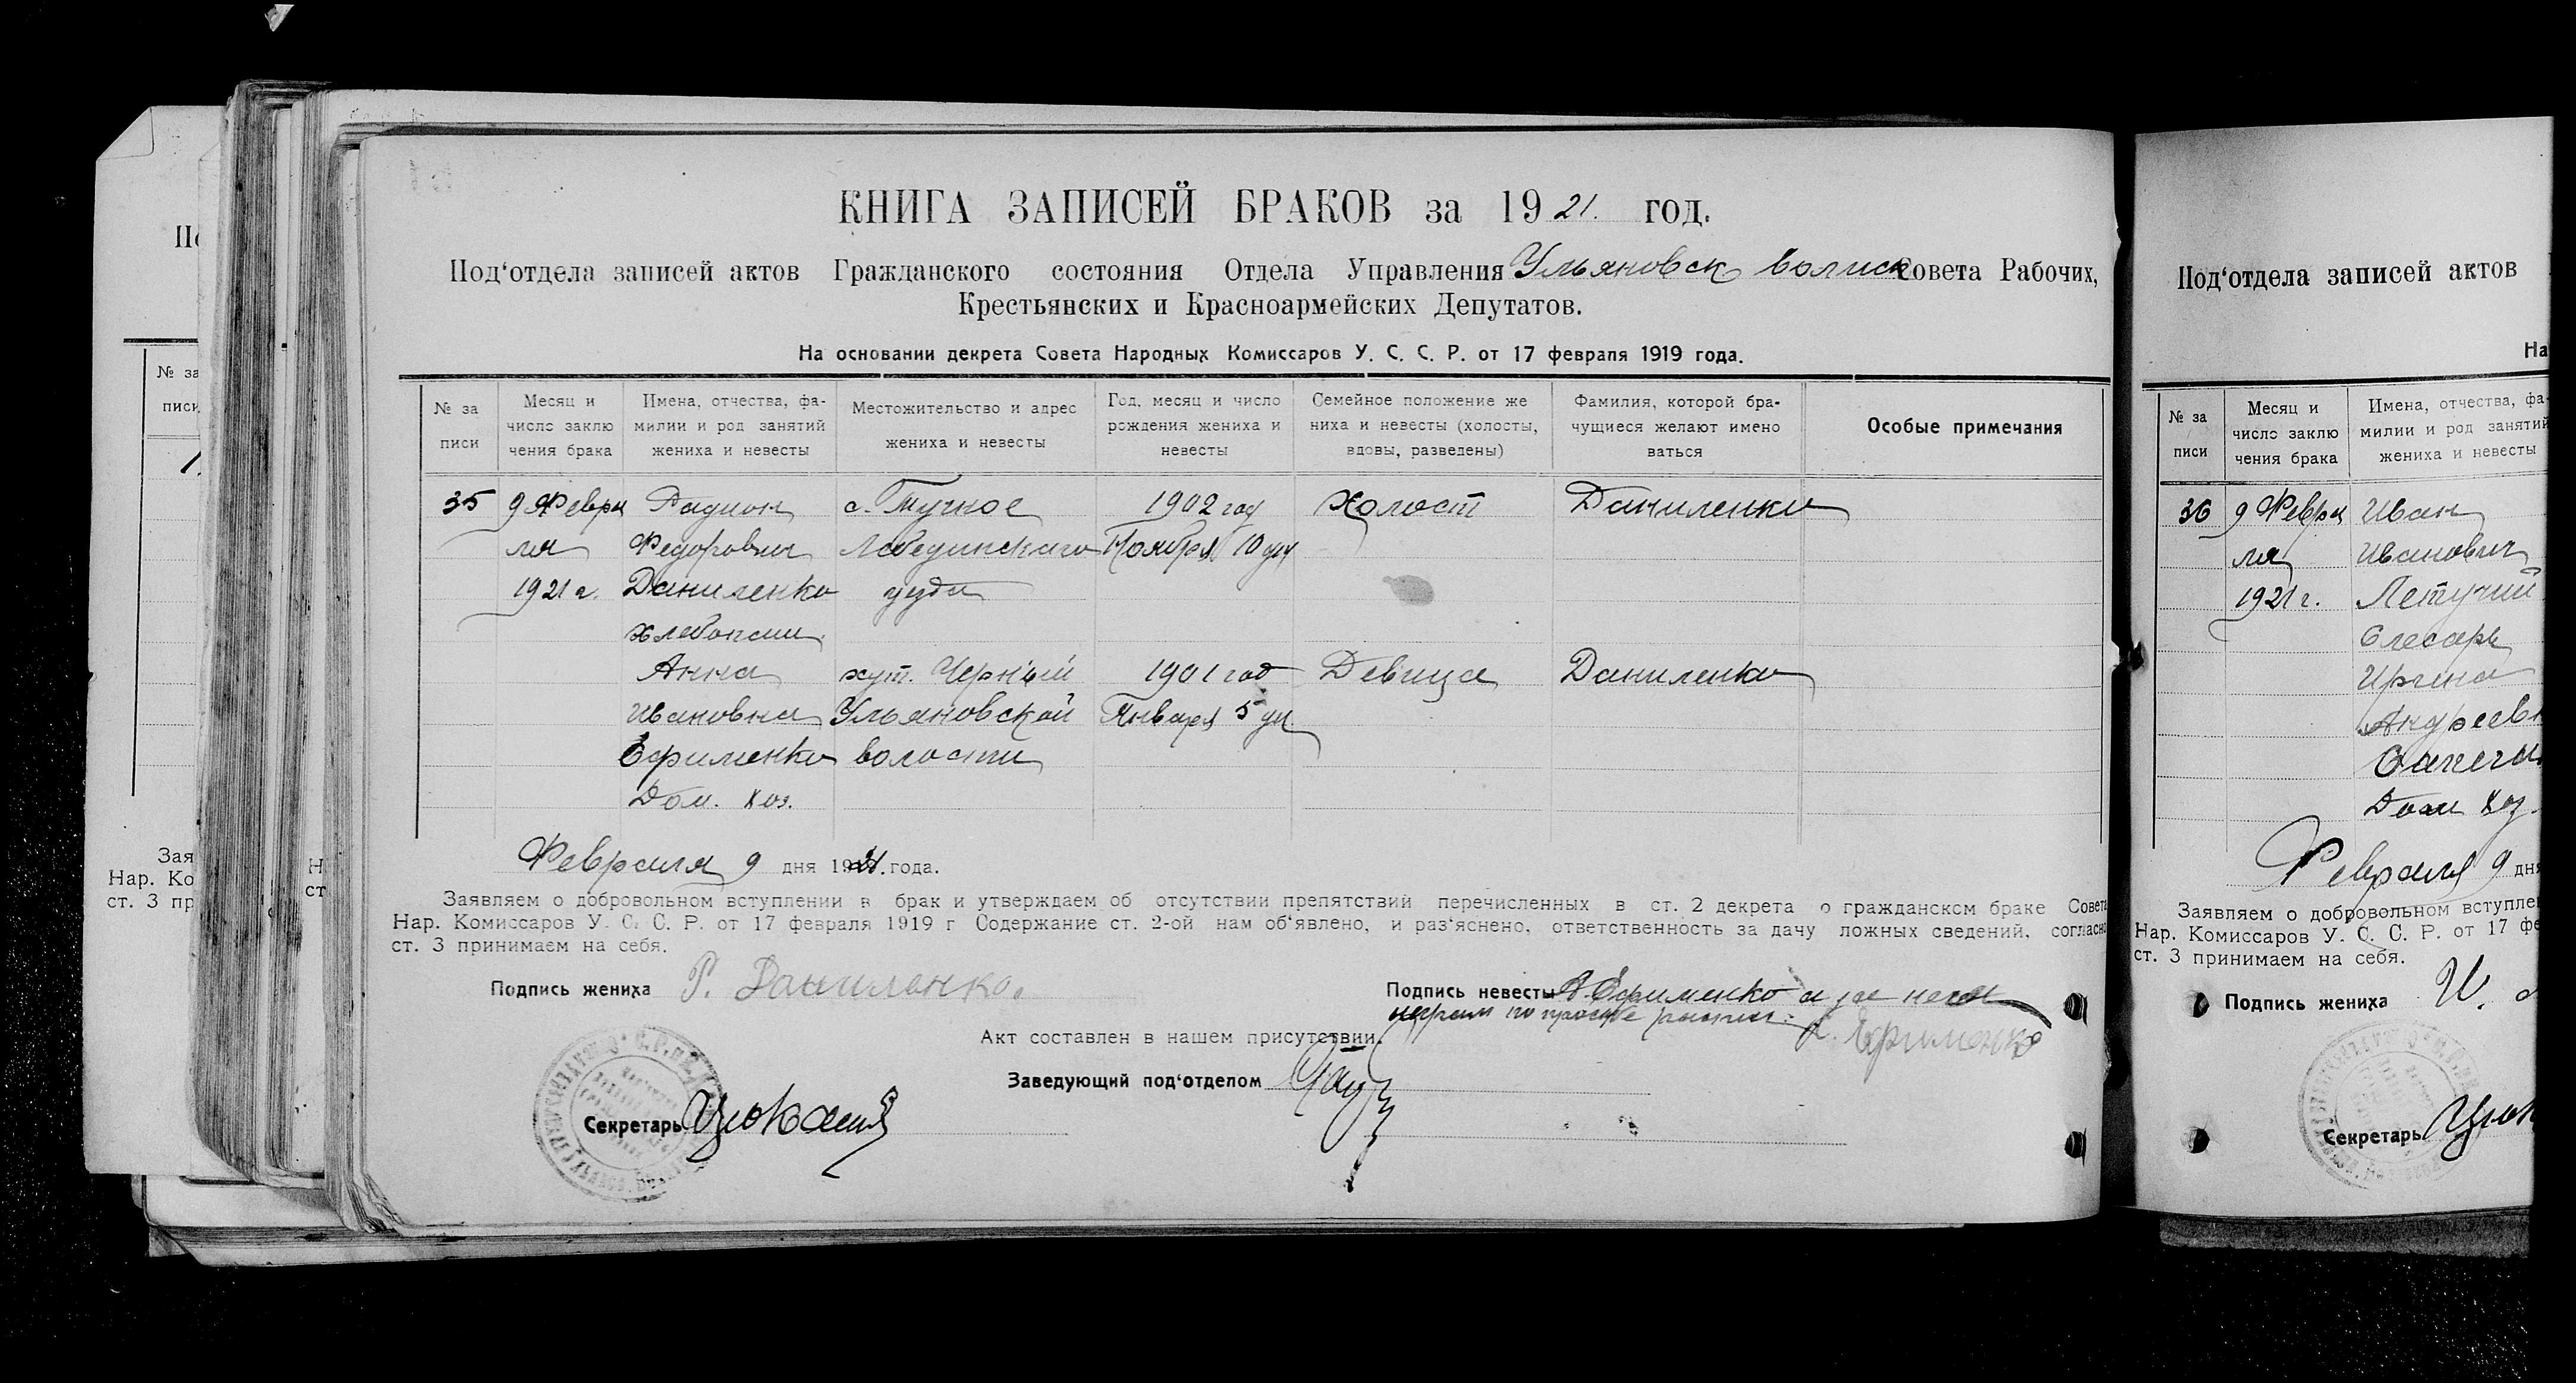 КНИГА ЗАПИСЕЙ БРАКОВ за 1921. год.
Под‘отдела записей актов Гражданского состояния Отдела Управления Ульяновск волиск Совета Рабочих,
Крестьянских и Красноармейских Депутатов.
На основании декрета Совета Народных Комиссаров У. С. С. Р. от 17 февраля 1919 года.
№ за
писи
Месяц и
число заклю
чения брака
Имена, отчества, фа-
милии и род занятий
жениха и невесты
Местожительство и адрес
жениха и невесты
Год, месяц и число
рождения жениха и
невесты
Семейное положение же
ниха и невесты (холосты,
вдовы, разведены)
Фамилия, которой бра-
чущиеся желают имено
ваться
Особые примечания
35 9 Февра Радион с. Тучное 1902 год Холост Даниленко
ля Федорович Лебединскаго Ноября 10 дня
1921 г. Даниленко уезда
хлебопаш.
Анна хут. Черный 1901 год Девица Даниленко
Ивановна Ульяновской Января 5 дн.
Ефименко волости
Дом. хоз.
Февраля 9 дня 1921. года.
Заявляем о добровольном вступлении в брак и утверждаем об отсутствии препятствий перечисленных в ст. 2 декрета о гражданском браке Совета
Нар. Комиссаров У. С. С. Р. от 17 февраля 1919 г Содержание ст. 2-ой нам об‘явлено, и раз‘яснено, ответственность за дачу ложных сведений, согласно
ст. 3 принимаем на себя.
Подпись жениха Р. Даниленко.
Подпись невесты А. Ефименко а за
по просьбе
Ефименко
Акт составлен в нашем присутствии.
Заведующий под‘отделом
Секретарь
№ за
писи
Зая
Нар. Ко
ст. 3 пр
Н
ст
Под‘отдела записей актов
На
№ за
писи
Месяц и
число заклю
чения брака
Имена, отчества, фа-
милии и род занятий
жениха и невесты
36 9 Февра Иван
ля Иванович
1921 г. Летучий
Слесарь
Ирина
Андреевн
Дом хоз.
Февраля 9 дня
Заявляем о добровольном вступле
Нар. Комиссаров У. С. С. Р. от 17 фе
ст. 3 принимаем на себя.
Подпись жениха И.
Секретарь